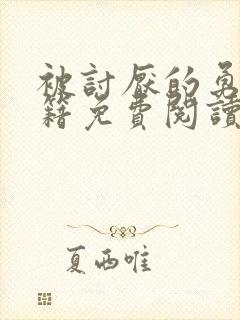 被討厭的勇
籍免費閱讀
夏西唯